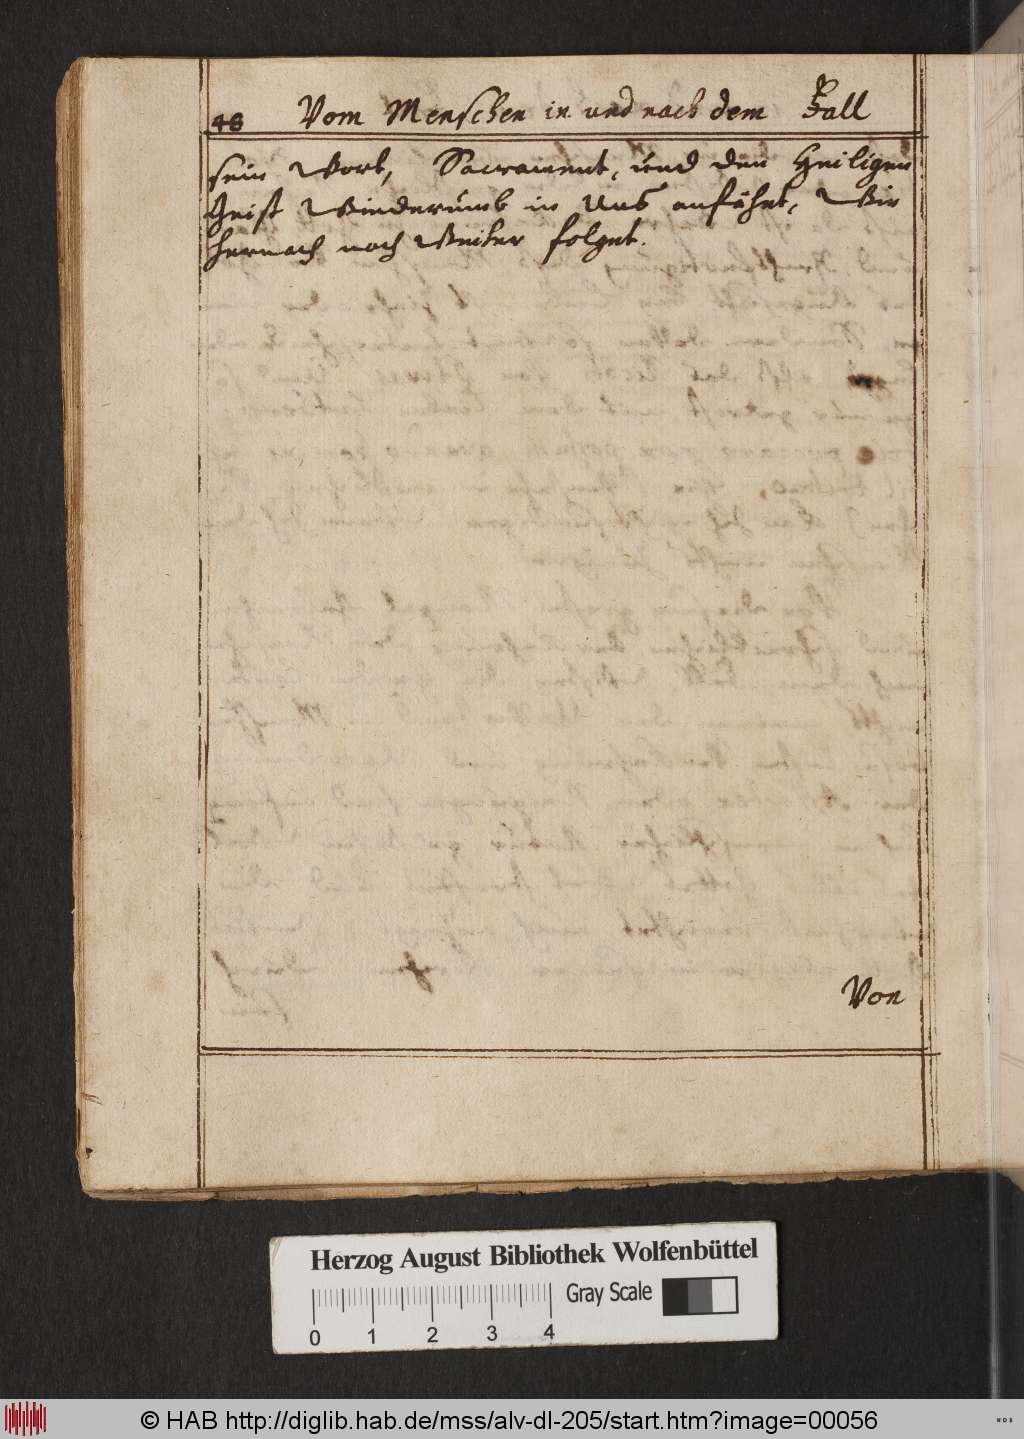 46 Vom Menschen in und nach dem Fall
sein Wort, Sacrament, und den Heiligen
Geist Wiederumb in Uns anfähet, Wie
hernach noch Weiter folget.
Von
Herzog August Bibliothek Wolfenbüttel
Gray Scale
0 1 2 3 4
© HAB http://diglib.hab.de/mss/alv-dl-205/start.htm?image=00056